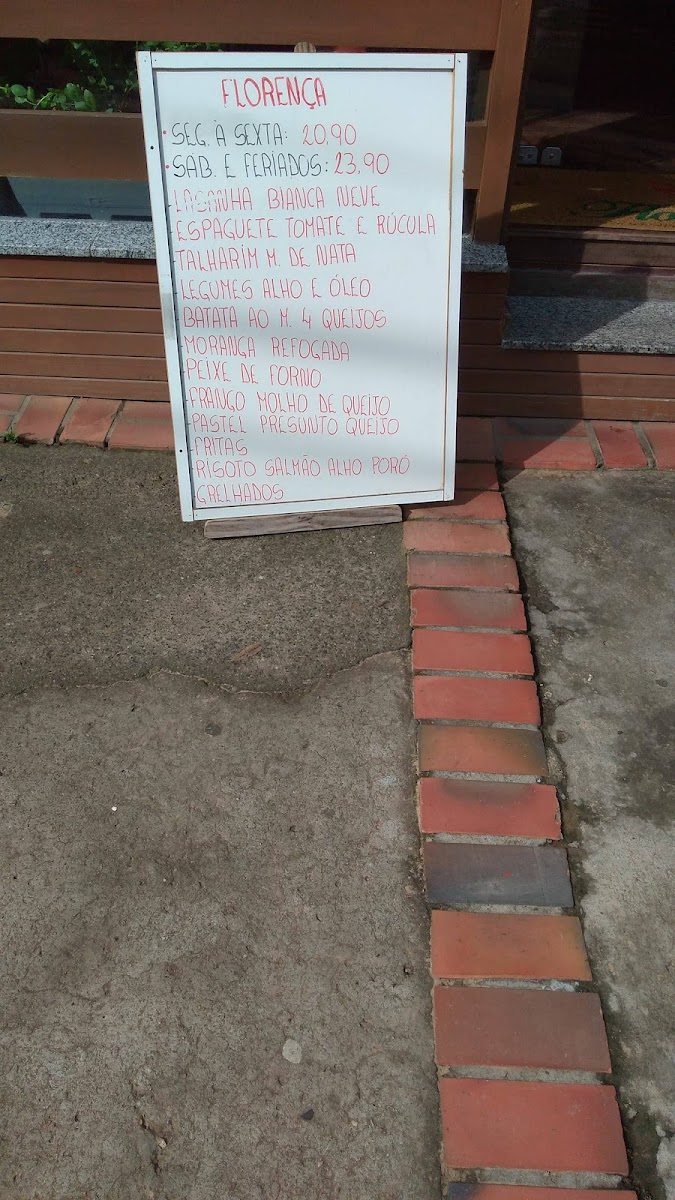 FLORENÇA
• SEG. À SEXTA: 20,90
• SAB. E FERIADOS: 23,90
-LASANHA BIANCA NEVE
-ESPAGUETE TOMATE E RÚCULA
-TALHARIM M. DE NATA
-LEGUMES ALHO E ÓLEO
-BATATA AO M. 4 QUEIJOS
-MORANGA REFOGADA
-PEIXE DE FORNO
-FRANGO MOLHO DE QUEIJO
-PASTEL PRESUNTO QUEIJO
-FRITAS
-RISOTO SALMÃO ALHO PORÓ
-GRELHADOS